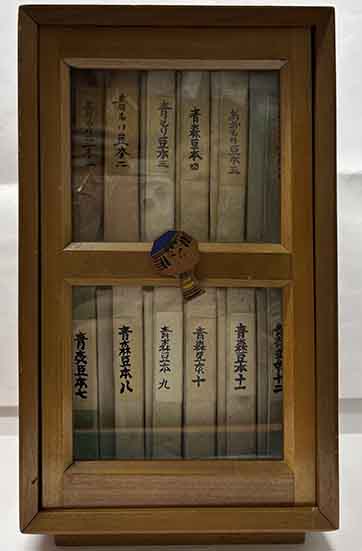 青もり豆本一
青もり豆本二
青もり豆本三
青森豆本四
あおもり豆本五
青森豆本七
青森豆本八
青森豆本九
青森豆本十
青森豆本十一
青森豆本十二